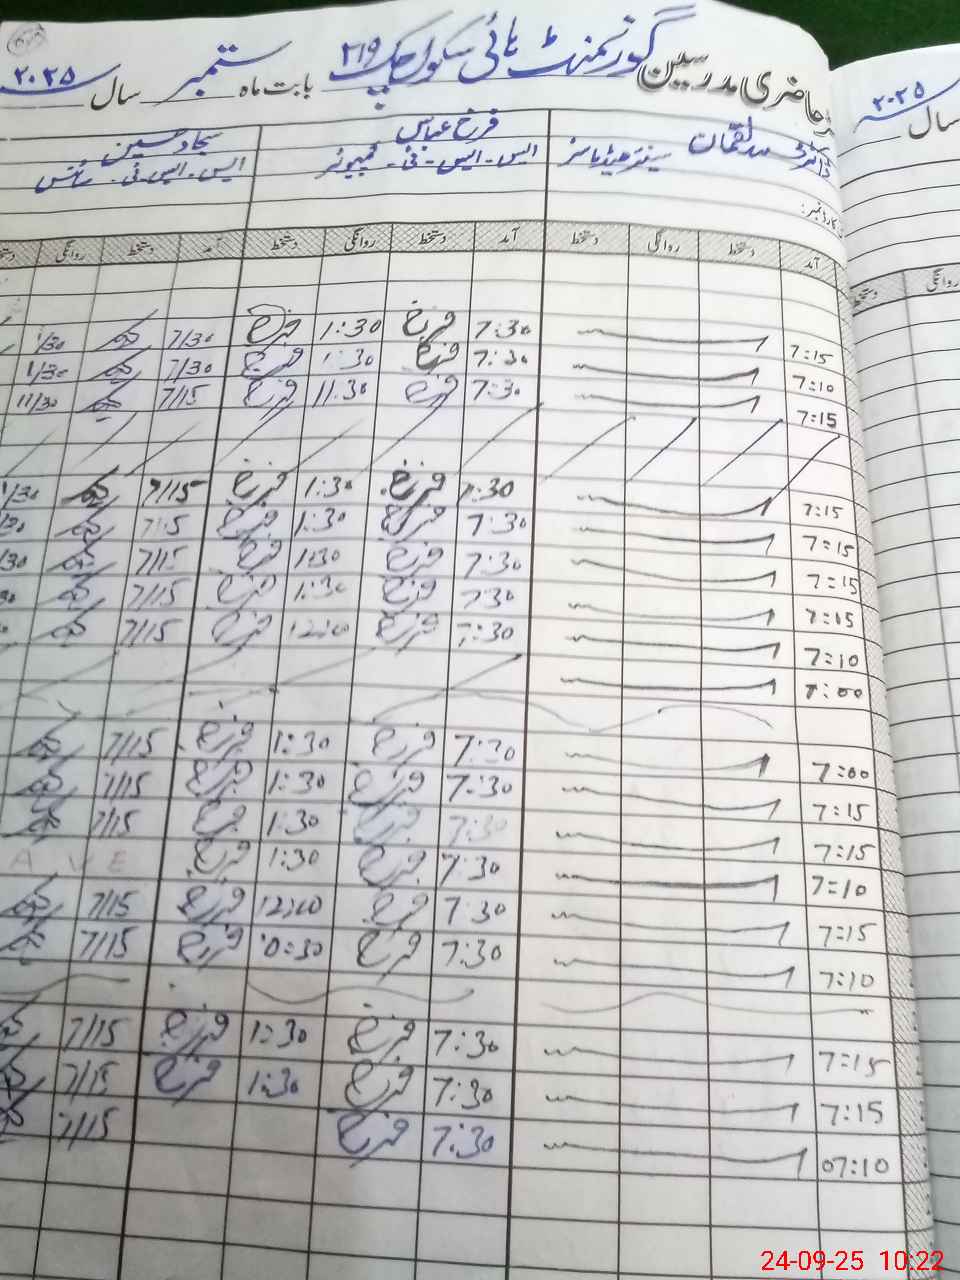 حاضری مدرسین گورنمنٹ ہائی سکول چک ۲۱۹ بابت ماہ ستمبر سال ۲۰۲۵
سال ۲۰۲۵
ڈاکٹر لقمان فرخ عباس سجاد حسین
سینئر ہیڈماسٹر ایس۔ایس۔ٹی۔ کمپیوٹر ایس۔ایس۔ٹی۔ سائنس
کارڈ نمبر:
آمد دستخط روانگی دستخط آمد دستخط روانگی دستخط آمد دستخط روانگی
روانگی دستخط
7:15 7:30 فرخ 1:30 فرخ 7/30 1/30
7:10 7:30 فرخ 1:30 فرخ 7/30 1/30
7:15 7:30 فرخ 11:30 فرخ 7/15 11/30
7:15 فرخ 1:30 فرخ 7/15
7:15 7:30 فرخ 1:30 فرخ
7:15 7:30 فرخ 1:30 فرخ 7/15
7:15 7:30 فرخ 1:30 فرخ 7/15
7:10 7:30 فرخ 12:00 فرخ 7/15
7:00
7:00 7:30 فرخ 1:30 فرخ 7/15
7:15 7:30 فرخ 1:30 فرخ 7/15
7:15 7:30 فرخ 1:30 فرخ 7/15
7:10 7:30 فرخ 1:30 فرخ
7:15 7:30 فرخ 12:00 فرخ 7/15
7:10 7:30 فرخ فرخ 7/15
7:15 7:30 فرخ 1:30 فرخ 7/15
7:15 7:30 فرخ 1:30 فرخ 7/15
07:10 7:30 فرخ 7/15
24-09-25 10:22